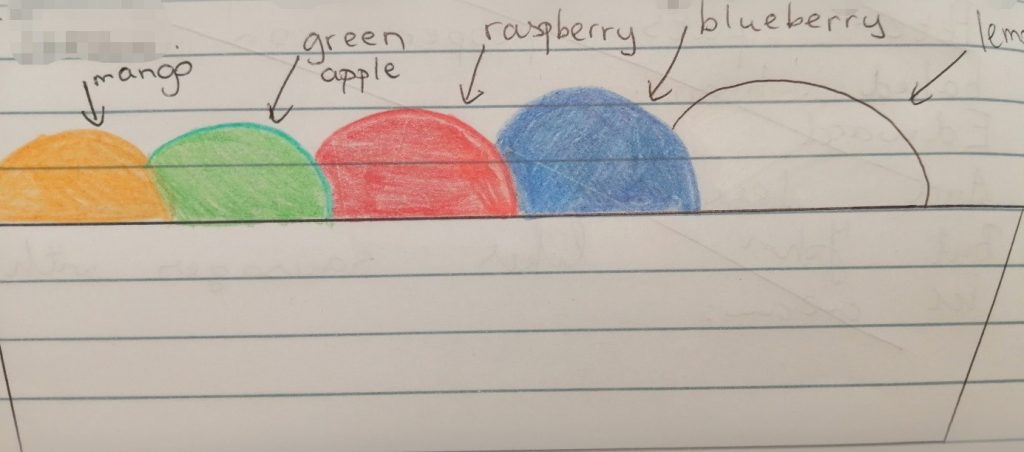 mango
green
apple
raspberry
blueberry